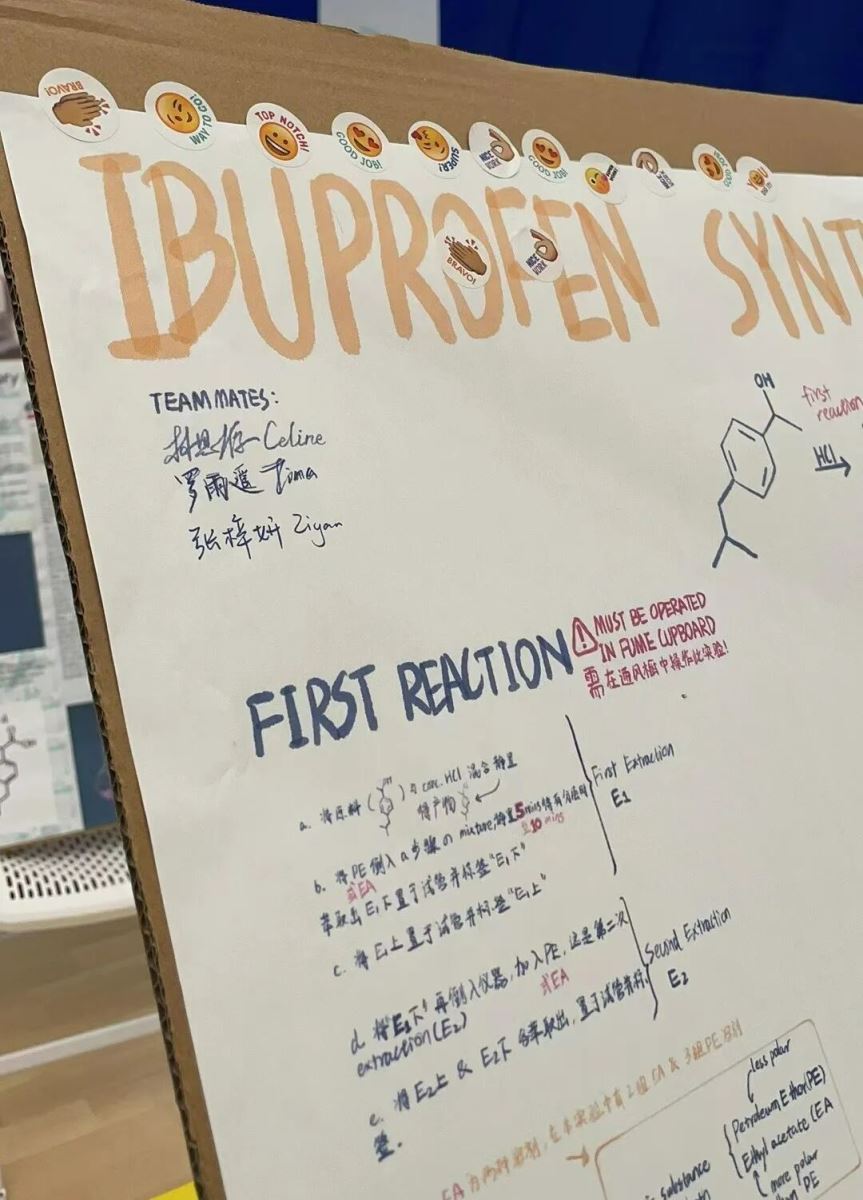 BRAVO!
WAY TO GO!
TOP NOTCH!
GOOD JOB!
SUPER!
NICE WORK
GOOD JOB!
GOOD JOB!
YOU DID IT!
IBUPROFEN SYNT
BRAVO!
NICE WORK
TEAM MATES:
Celine
罗雨遥
张梓妍 Ziyan
OH
first
reaction
HCl
FIRST REACTION
MUST BE OPERATED
IN FUME CUPBOARD
需在通风橱中操作此实验!
a. 将原料 ( OH ) 与 conc. HCl 混合静置
得产物
b. 将PE倒入a步骤の mixture, 静置5mins待有分层时
或EA
至10 mins
萃取出E₁下置于试管并标签"E₁下"
c. 将E₁上置于试管并标签"E₁上"
First Extraction
E1
d. 将"E₁下"再倒入仪器, 加入PE, 这是第二次
或EA
extraction (E2)
e. 将E2上 & E2下 各萃取出, 置于试管并标
签.
Second Extraction
E2
EA 为两种溶剂, 在本实验中有2组EA & 3组PE
less polar
Petroleum Ether (PE)
Ethyl acetate (EA
more polar
PE
substance